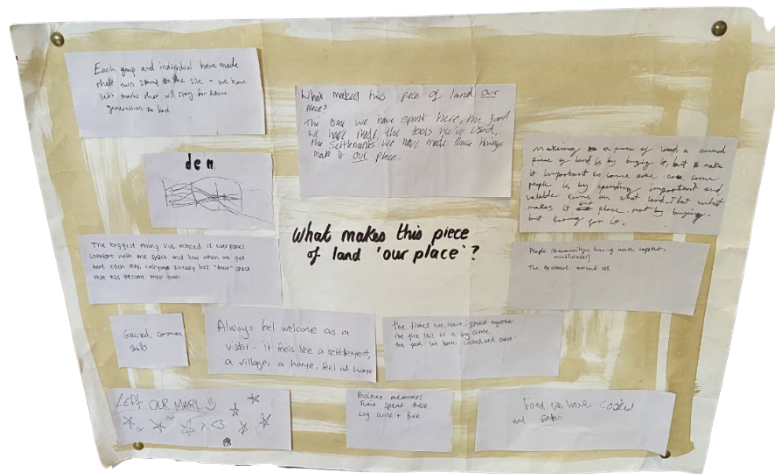 Each group and individual have made
their own stamp on the site - we have
left marks that will stay for future
generations to
What makes this piece of land our
place?
The time we have spent here, the
we have made the tools we've used,
the settlements we have made these things
make it our place.
den
Making a piece of land a owned
piece of land is by buying it, but to make
it important to some one. some
people is by spending important and
valuble time on that land, that what
makes it place. not by buying.
but loving it.
What makes this piece
of land 'our place'?
The biggest thing I've noticed is everyones
comfort with the space and how when we get
here each day everyone already has "their" space
has become their own
People communitys living inside together,
The around us
Gained common
skills
Always feel welcome as a
visitor - it feels like a settlement,
a village, a home. feel at home
the times we have spent together
the fire
the food we have
LEFT OUR MARK
Positive memories
Time spent there
Log circle + fire
food we have cooked
and eaten